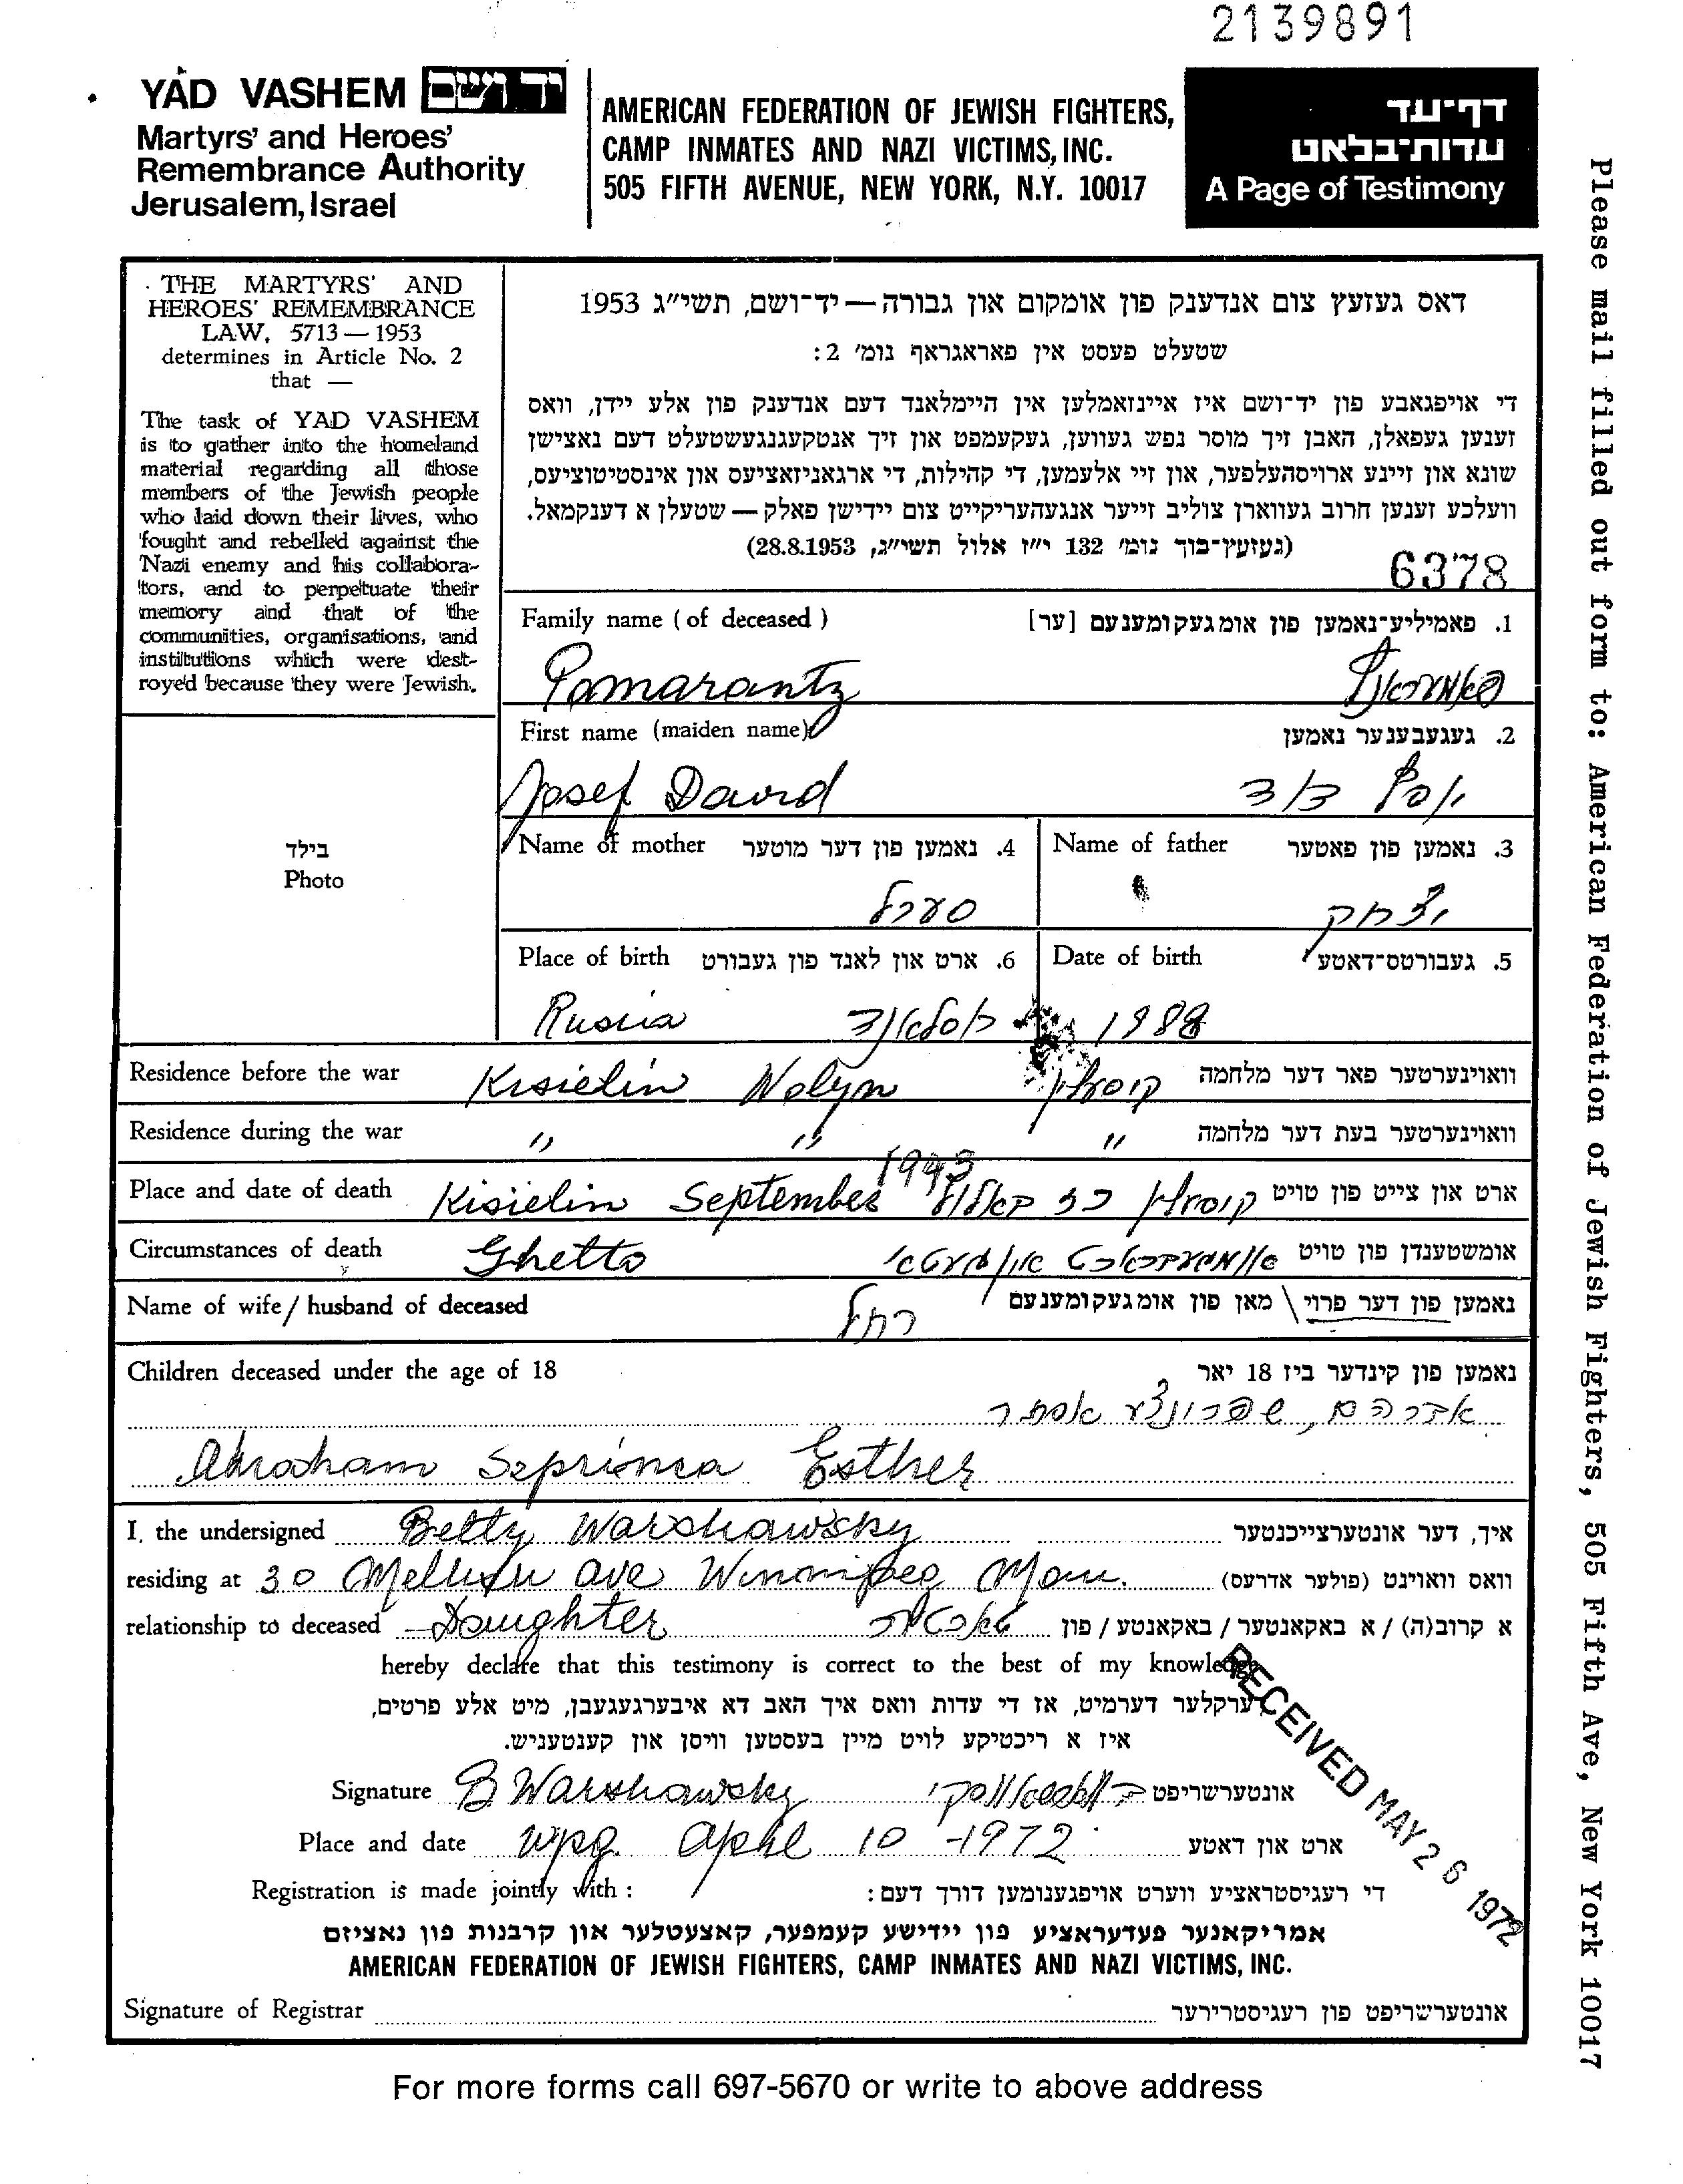 2139891
YAD VASHEM יד ושם
Martyrs' and Heroes'
Remembrance Authority
Jerusalem, Israel
AMERICAN FEDERATION OF JEWISH FIGHTERS,
CAMP INMATES AND NAZI VICTIMS, INC.
505 FIFTH AVENUE, NEW YORK, N.Y. 10017
דף-עד
עדות-בלאט
A Page of Testimony
THE MARTYRS' AND
HEROES' REMEMBRANCE
LAW, 5713 — 1953
determines in Article No. 2
that —
The task of YAD VASHEM
is to gather into the homeland
material regarding all those
members of the Jewish people
who laid down their lives, who
fought and rebelled against the
Nazi enemy and his collabora-
tors, and to perpetuate their
memory and that of the
communities, organisations, and
institutions which were dest-
royed because they were Jewish.
דאס געזעץ צום אנדענק פון אומקום און גבורה — יד-ושם, תשי״ג 1953
שטעלט פעסט אין פאראגראף נומ׳ 2:
די אויפגאבע פון יד-ושם איז איינזאמלען אין היימלאנד דעם אנדענק פון אלע יידן, וואס
זענען געפאלן, האבן זיך מוסר נפש געווען, געקעמפט און זיך אנטקעגנגעשטעלט דעם נאצישן
שונא און זיינע ארויסהעלפער, און זיי אלעמען, די קהילות, די ארגאניזאציעס און אינסטיטוציעס,
וועלכע זענען חרוב געווארן צוליב זייער אנגעהעריקייט צום יידישן פאלק — שטעלן א דענקמאל.
(געזעץ-בוך נומ׳ 132 י״ז אלול תשי״ג, 28.8.1953)
6378
Family name (of deceased) 1. פאמיליע-נאמען פון אומגעקומענעם [ער]
Pomarantz פאמעראנץ
First name (maiden name) 2. געגעבענער נאמען
Josef David יוסף דוד
Name of mother 4. נאמען פון דער מוטער Name of father 3. נאמען פון פאטער
סערל יצחק
Place of birth 6. ארט און לאנד פון געבורט Date of birth 5. געבורטס-דאטע
Rusia רוסלאנד 1988
Residence before the war Kisielin Wolyn קיסעלין וואוינערטער פאר דער מלחמה
Residence during the war " " " וואוינערטער בעת דער מלחמה
Place and date of death Kisielin September 1943 ארט און צייט פון טויט
Circumstances of death Ghetto אומשטענדן פון טויט
Name of wife / husband of deceased רחל נאמען פון דער פרוי \ מאן פון אומגעקומענעם
Children deceased under the age of 18 נאמען פון קינדער ביז 18 יאר
אברהם, שפרונצע אסתר
Abraham Szprinca Esther
I, the undersigned Betty Warshawsky איך, דער אונטערצייכנטער
residing at 30 ave Winnipeg Man. וואס וואוינט (פולער אדרעס)
relationship to deceased Daughter טאכטער א קרוב(ה) / א באקאנטער / באקאנטע / פון
hereby declare that this testimony is correct to the best of my knowledge
ערקלער דערמיט, אז די עדות וואס איך האב דא איבערגעגעבן, מיט אלע פרטים,
איז א ריכטיקע לויט מיין בעסטען וויסן און קענטעניש.
Signature B Warshawsky אונטערשריפט
Place and date Wpg. April 10 - 1972 ארט און דאטע
Registration is made jointly with: די רעגיסטראציע ווערט אויפגענומען דורך דעם:
אמריקאנער פעדעראציע פון יידישע קעמפער, קאצעטלער און קרבנות פון נאציזם
AMERICAN FEDERATION OF JEWISH FIGHTERS, CAMP INMATES AND NAZI VICTIMS, INC.
Signature of Registrar אונטערשריפט פון רעגיסטרירער
RECEIVED MAY 26 1972
For more forms call 697-5670 or write to above address
Please mail filled out form to: American Federation of Jewish Fighters, 505 Fifth Ave, New York 10017